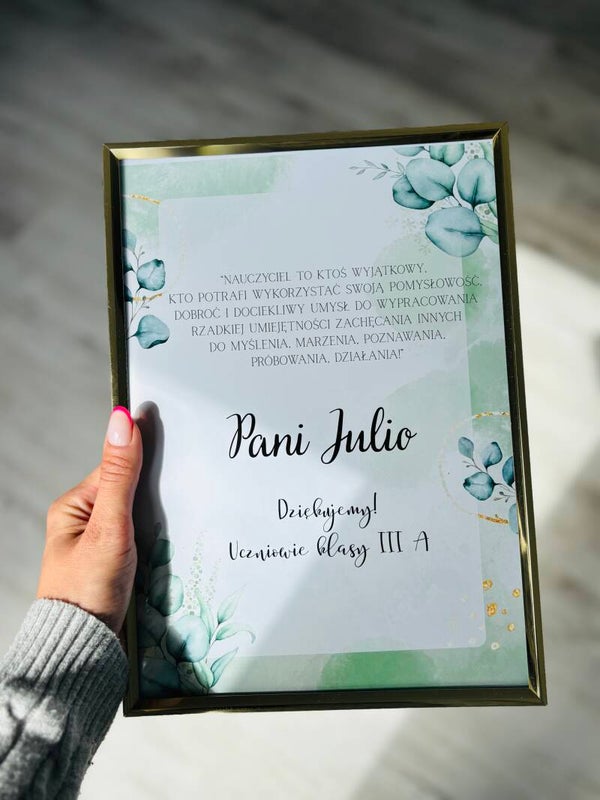 "NAUCZYCIEL TO KTOŚ WYJĄTKOWY,
KTO POTRAFI WYKORZYSTAĆ SWOJĄ POMYSŁOWOŚĆ,
DOBROĆ I DOCIEKLIWY UMYSŁ DO WYPRACOWANIA
RZADKIEJ UMIEJĘTNOŚCI ZACHĘCANIA INNYCH
DO MYŚLENIA, MARZENIA, POZNAWANIA,
PRÓBOWANIA, DZIAŁANIA!"
Pani Julio
Dziękujemy!
Uczniowie klasy III A